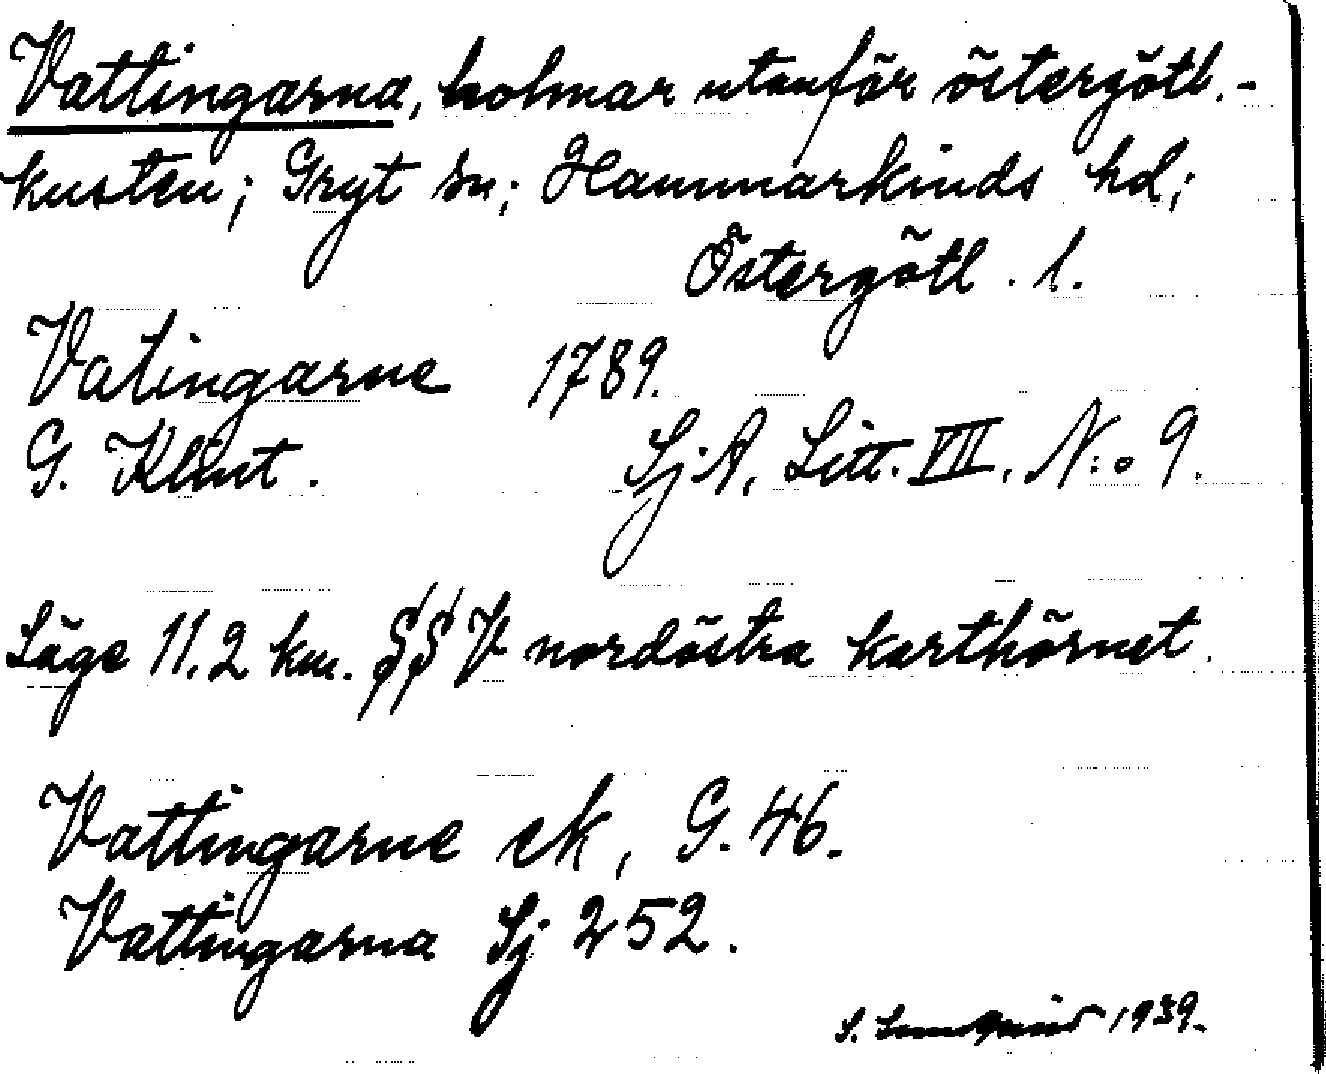 Vattingarna, holmar utanför östergötl.-
kusten; Gryt sn; Hammarkinds hd;
Östergötl. l.
Vatingarne 1789.
G. Klint. SjA. Litt. VII. N:o 9.
Läge 11.2 km. §§V nordöstra karthörnet.
Vattingarne ek, G. 46.
Vattingarna Sj 252.
S. 1939.